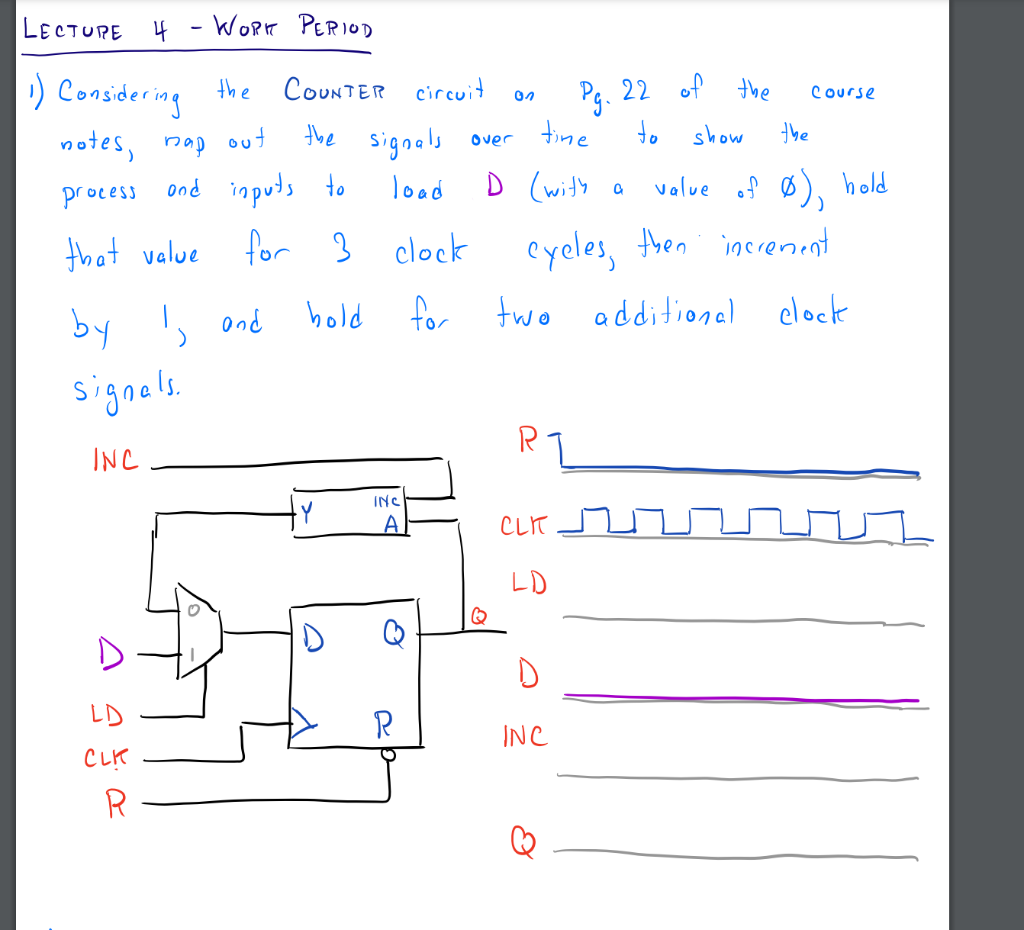 LECTURE 4 - WORK PERIOD
1) Considering the COUNTER circuit on Pg. 22 of the course
notes, map out the signals over time to show the
process and inputs to load D (with a value of Ø), hold
that value for 3 clock cycles, then increment
by 1, and hold for two additional clock
signals.
R
INC
Y INC
A
CLK
LD
0
Q
D Q
D
1
D
LD
R
INC
CLK
R
Q